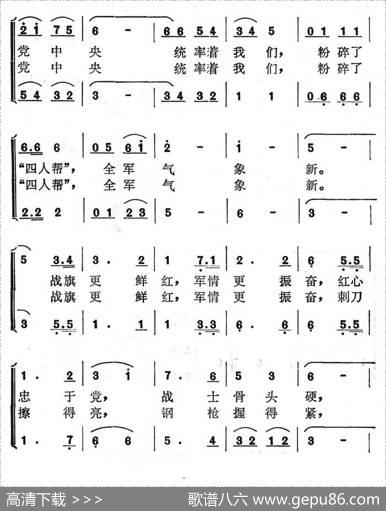 2̇i̇ 75 | 6 - | 66 54 | 345 | 01 11 |
党中央 统率着 我们， 粉碎了
党中央 统率着 我们， 粉碎了
54 32 | 3 - | 34 32 | 1 1 | 06̣ 6̣6̣ |
6.6 6 | 05 6i̇ | 2̇ - | i̇ - | 5 - |
“四人帮”， 全军 气 象 新。
“四人帮”， 全军 气 象 新。
2.2 2 | 01 23 | 5 - | 6 - | 3 - |
5 3.4 | 3. 2 | 1 7̣.1 | 2. 2 | 6̣ 5̣.5̣ |
战旗 更 鲜 红， 军情 更 振 奋， 红心
战旗 更 鲜 红， 军情 更 振 奋， 刺刀
3 5̣.5̣ | 1. 1 | 1 3̣.3̣ | 6̣. 6̣ | 6̣ 5̣.5̣ |
1. 2 | 3 i̇ | 7. 6 | 5 6 | 5 - |
忠 于 党， 战 士 骨 头 硬，
擦 得 亮， 钢 枪 握 得 紧，
1. 7̣ | 6̣ 6 | 5. 4 | 32 12 | 3 - |
高清下载 >>>
歌谱八六 www.gepu86.com